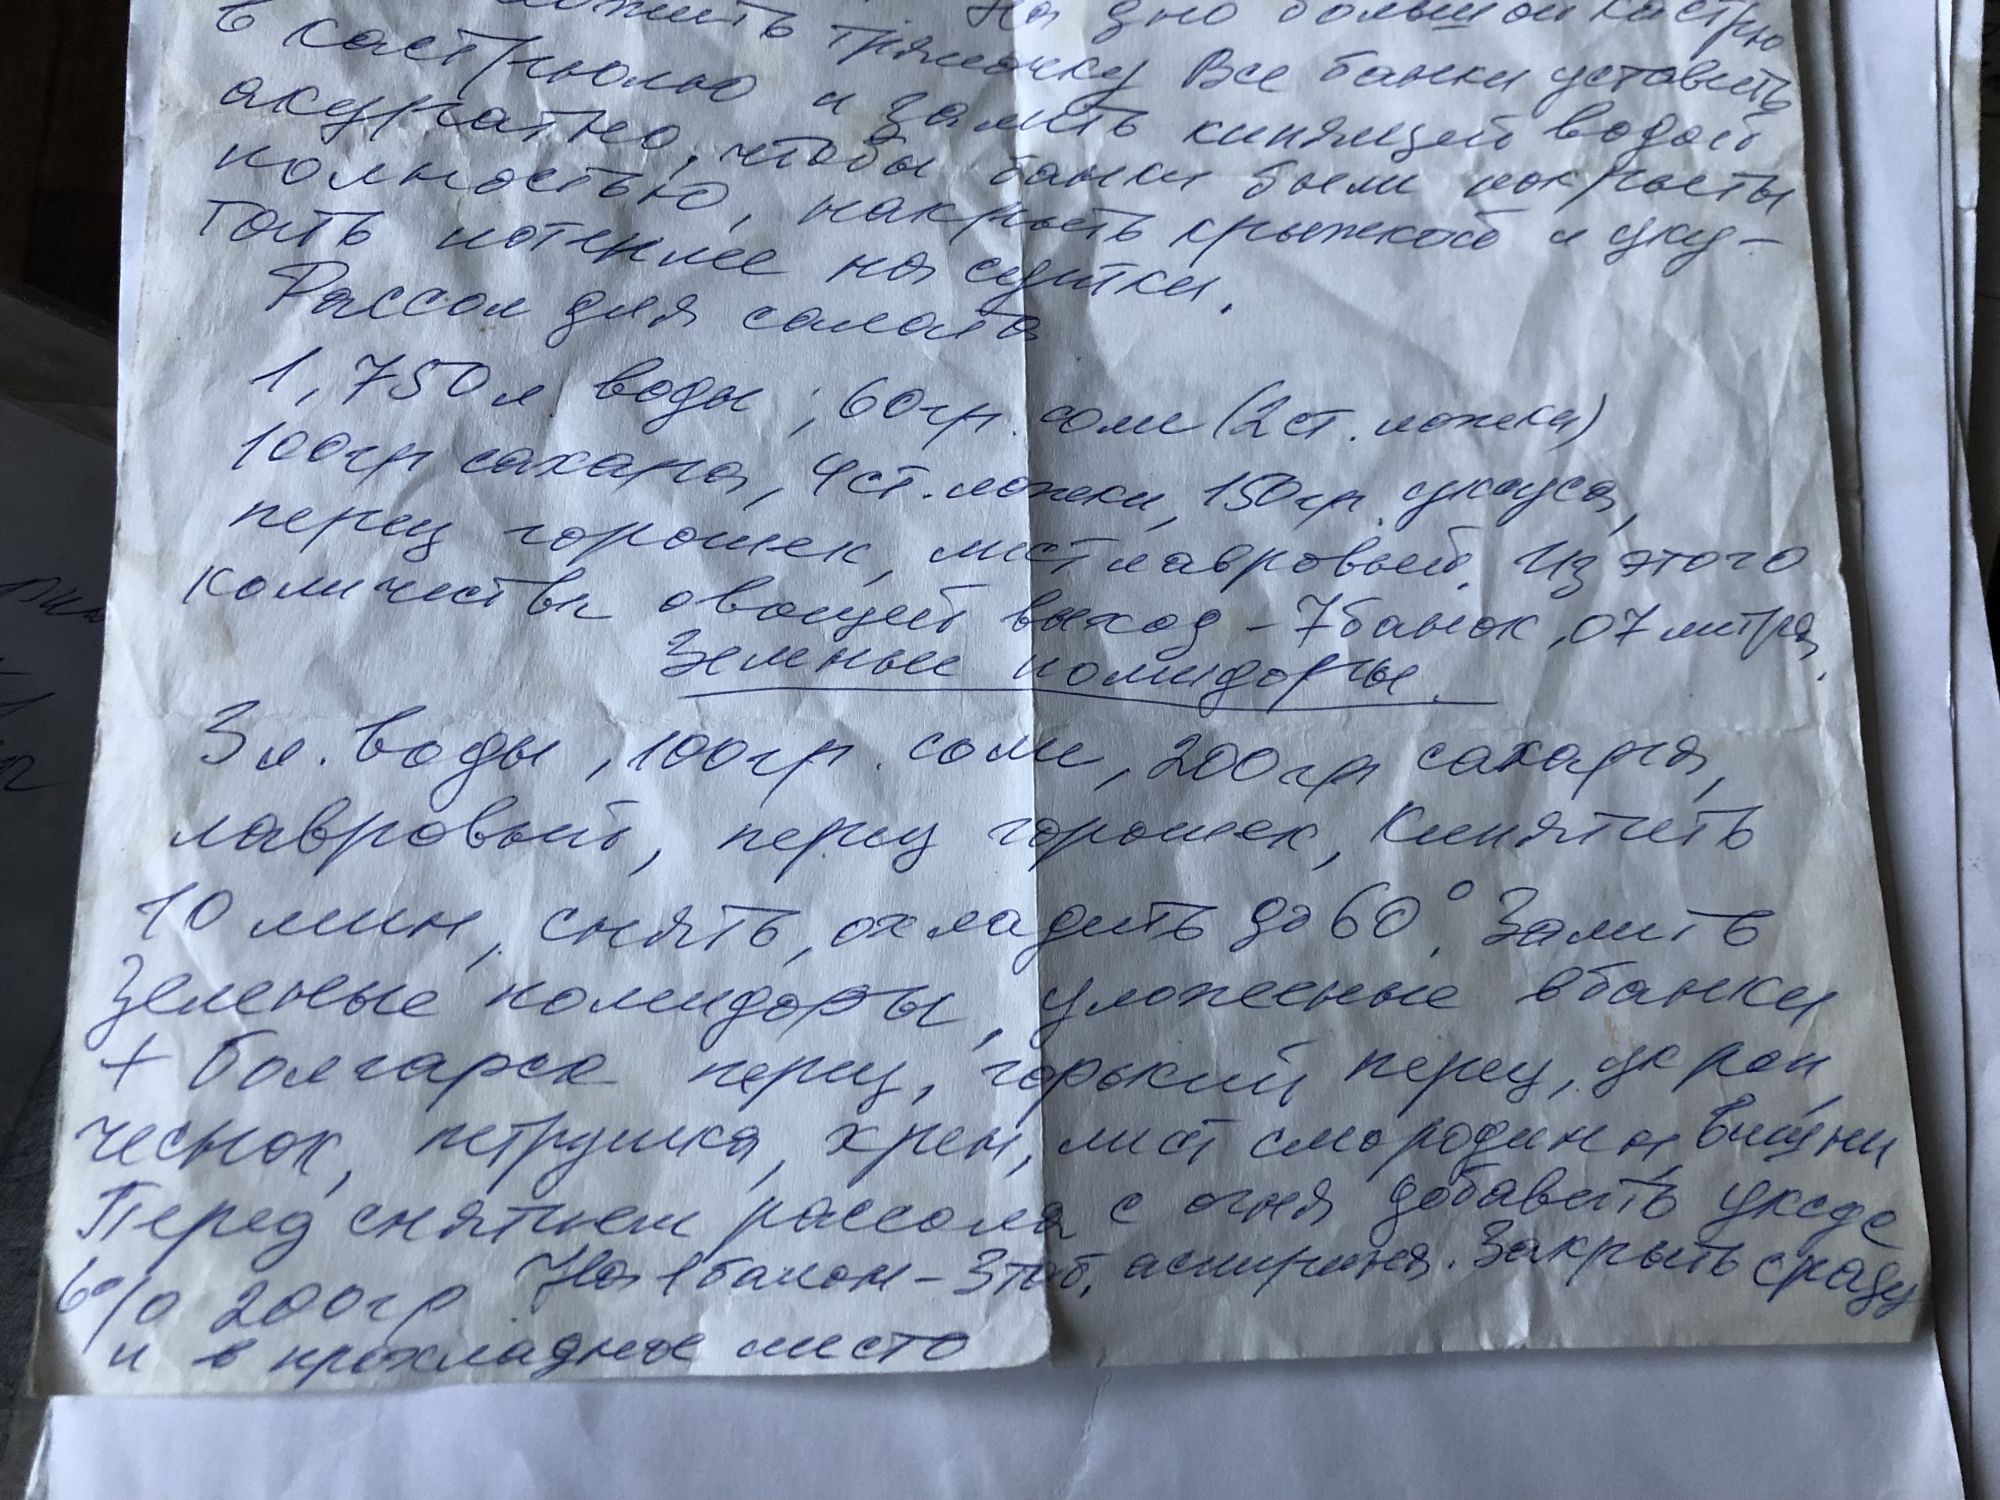 На дно большой кастрю
ложить тряпочку Все банки уставить
в кастрюлю и залить кипящей водой
акуратно, чтобы банки были покрыты
полностью, накрыть крышкой и уку-
тать потеплее на сутки.
Рассол для салата
1,750 л. воды, 60гр. соли (2 ст. ложки)
100гр сахара, 4 ст. ложки, 150гр. уксуса,
перец горошек, лист лавровый. Из этого
количества овощей выход - 7 банок, 07 литра.
Зелные помидоры.
3 л. воды, 100гр. соли, 200гр сахара,
лавровый, перец горошек, Кипятить
10 мин, снять, охладить до 60°. Залить
Зеленые помидоры, уложеные в банки
+ болгарск перец, горький перец, укроп,
чеснок, петрушка, хрен, лист смородины, вишни
Перед снятием рассола с огня добавить уксус
6% 200гр. На 1 балон - 3 таб. аспирина. Закрыть сразу
и в прохладное место